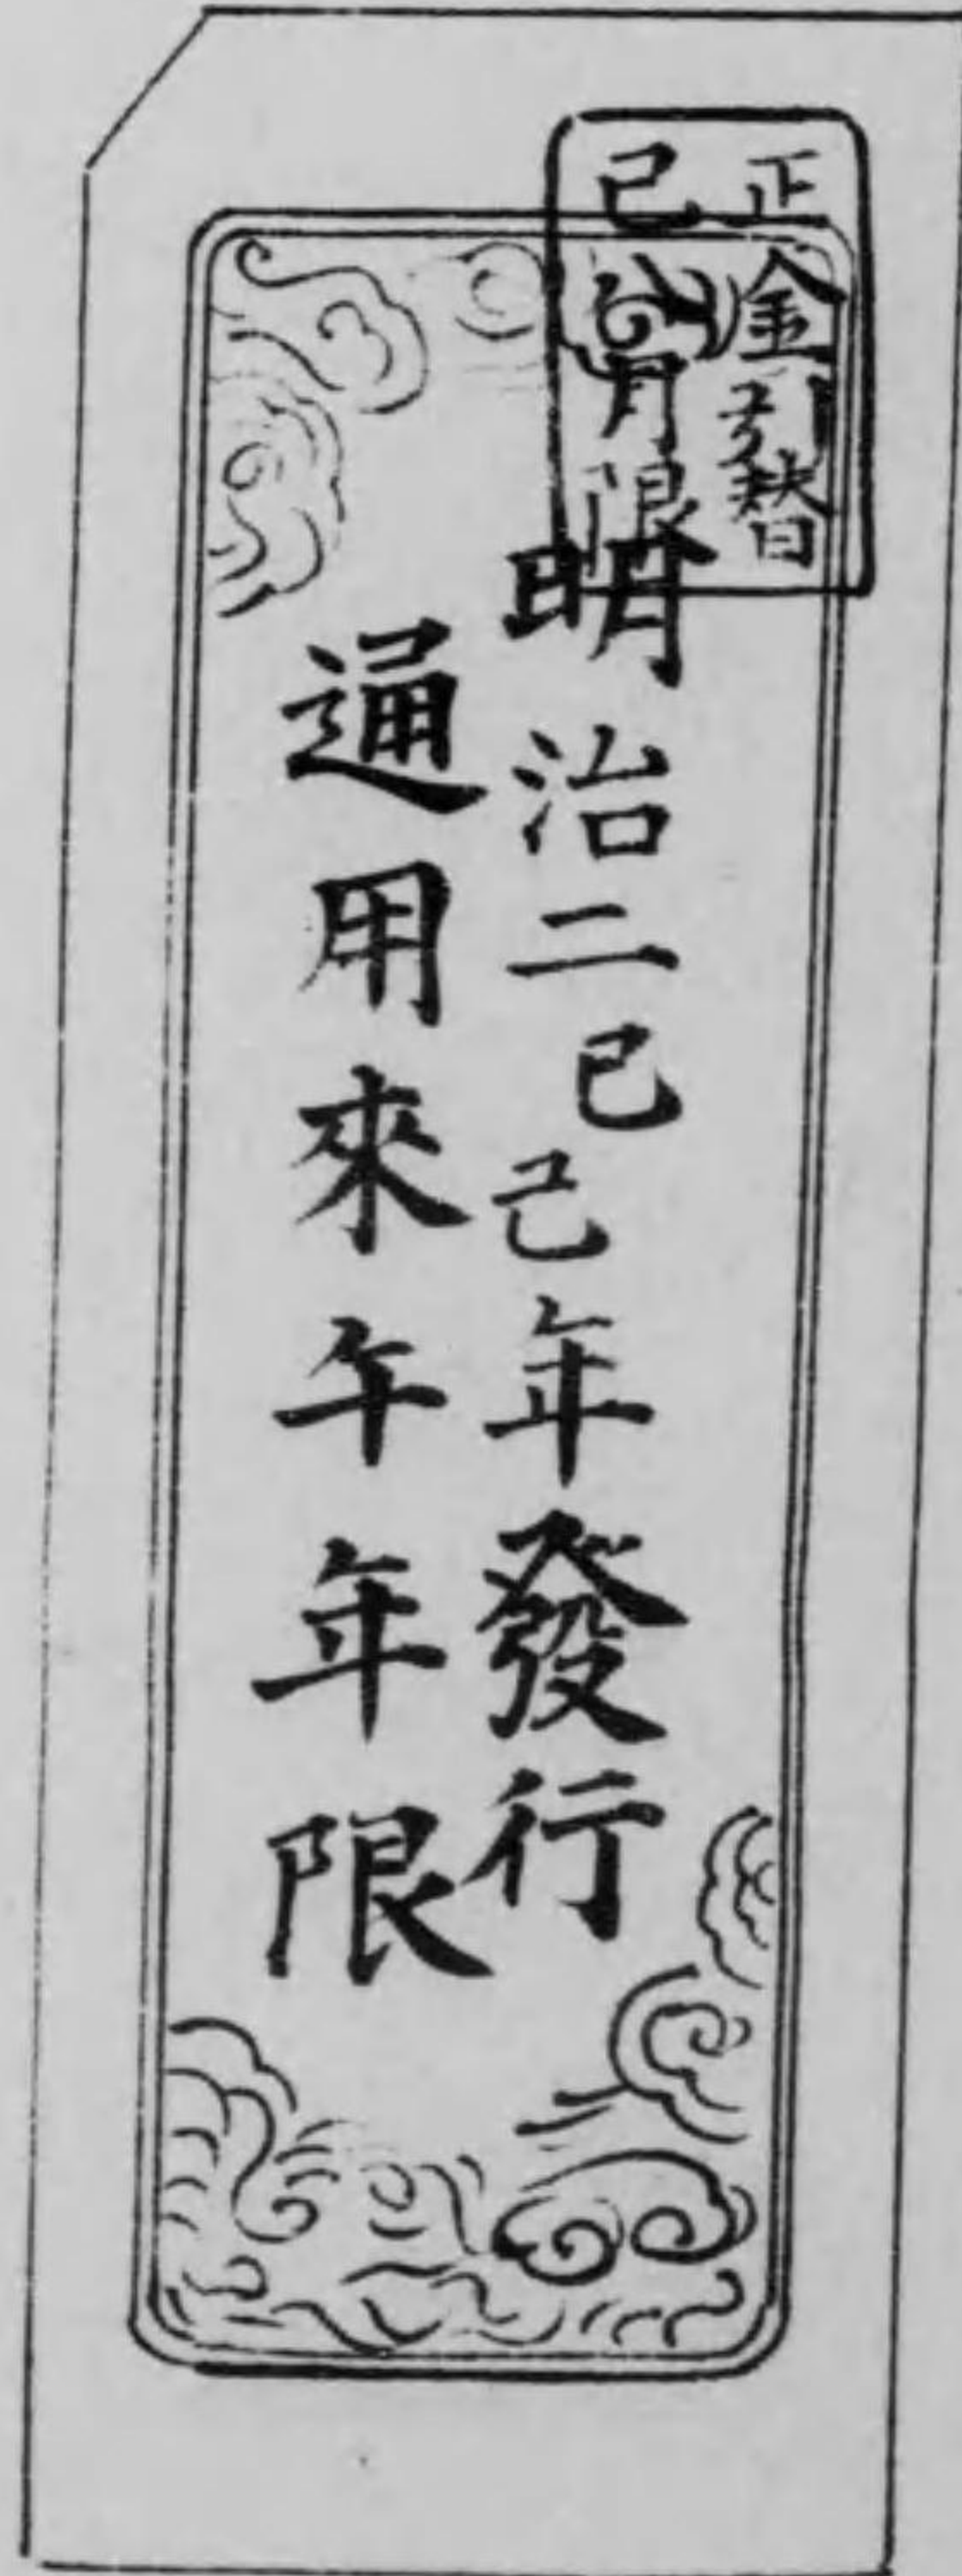 正金引替
巳 月限
明治二己巳年發行
通用來午年限